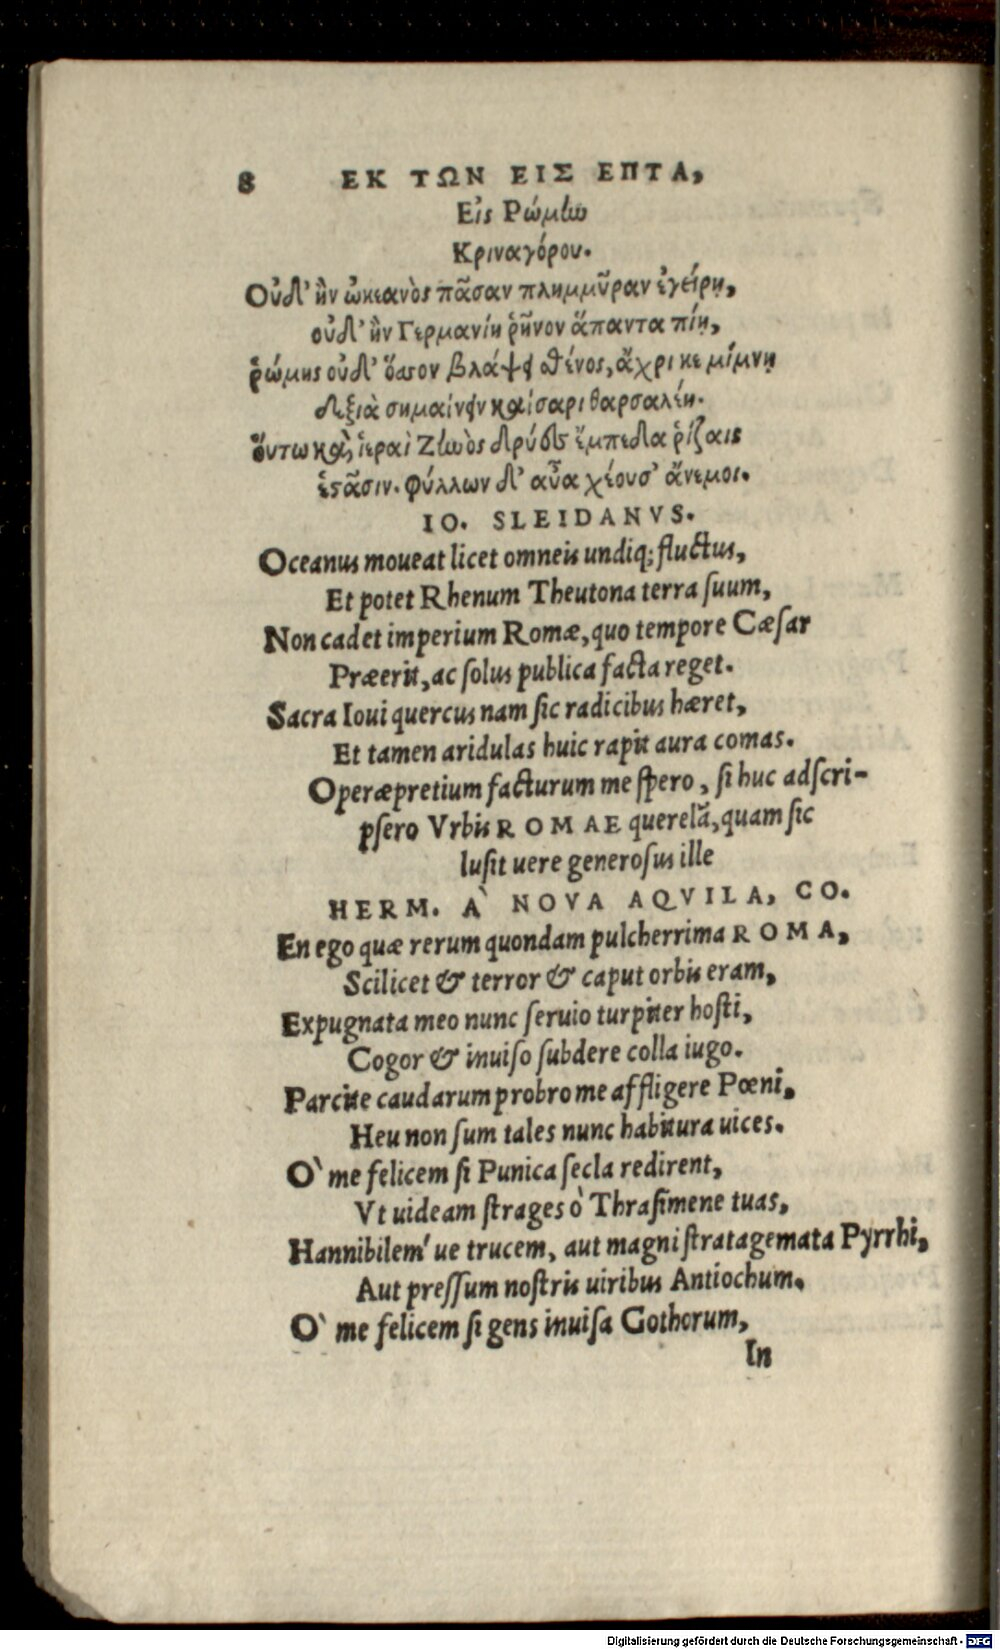 8 ΕΚ ΤΩΝ ΕΙΣ ΕΠΤΑ,
Εἰς Ρώμην
Κριναγόρου.
Οὐδ' ἢν ὠκεανὸς πᾶσαν πλημμῦραν ἐγείρῃ,
οὐδ' ἢν Γερμανίη ῥῆνον ἅπαντα πίῃ,
ῥώμης οὐδ' ὅσον βλάψει σθένος, ἄχρι κε μίμνῃ
δεξιὰ σημαίνειν καίσαρι θαρσαλέη.
οὕτω καὶ ἱεραὶ Ζηνὸς δρύες ἔμπεδα ῥίζαις
ἑστᾶσιν. φύλλων δ' αὖα χέουσ' ἄνεμοι.
IO. SLEIDANVS.
Oceanus moueat licet omneis undiq; fluctus,
Et potet Rhenum Theutona terra ſuum,
Non cadet imperium Romæ, quo tempore Cæſar
Præerit, ac ſolus publica facta reget.
Sacra Ioui quercus nam ſic radicibus hæret,
Et tamen aridulas huic rapit aura comas.
Operæpretium facturum me ſpero, ſi huc adſcri-
pſero Vrbis ROMAE querelã, quam ſic
luſit uere generoſus ille
HERM. A` NOVA AQVILA, CO.
En ego quæ rerum quondam pulcherrima ROMA,
Scilicet & terror & caput orbis eram,
Expugnata meo nunc ſeruio turpiter hoſti,
Cogor & inuiſo ſubdere colla iugo.
Parcite caudarum probro me affligere Pœni,
Heu non ſum tales nunc habitura uices.
O` me felicem ſi Punica ſecla redirent,
Vt uideam ſtrages ò Thraſimene tuas,
Hannibilem' ue trucem, aut magni ſtratagemata Pyrrhi,
Aut preſſum noſtris uiribus Antiochum.
O` me felicem ſi gens inuiſa Gothorum,
In
Digitalisierung gefördert durch die Deutsche Forschungsgemeinschaft - DFG